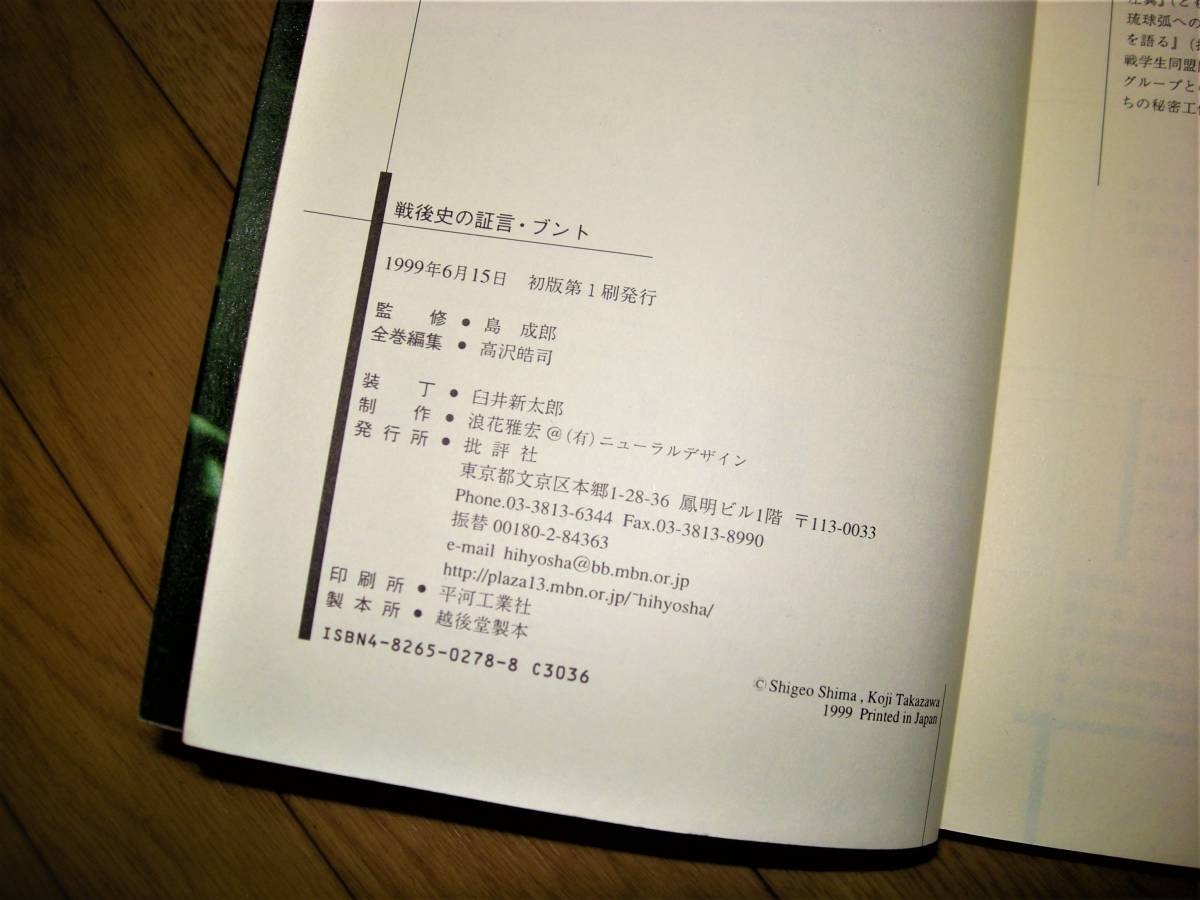 戦後史の証言・ブント
1999年6月15日　初版第1刷発行
監　修●島　成郎
全巻編集●高沢皓司
装　丁●臼井新太郎
制　作●浪花雅宏@(有)ニューラルデザイン
発行所●批評社
東京都文京区本郷1-28-36 鳳明ビル1階 〒113-0033
Phone.03-3813-6344 Fax.03-3813-8990
振替 00180-2-84363
e-mail hihyosha@bb.mbn.or.jp
http://plaza13.mbn.or.jp/~hihyosha/
印刷所●平河工業社
製本所●越後堂製本
ISBN4-8265-0278-8 C3036
© Shigeo Shima , Koji Takazawa
1999 Printed in Japan
琉球弧への
を語る』
戦学生同盟
グループと
ちの秘密工